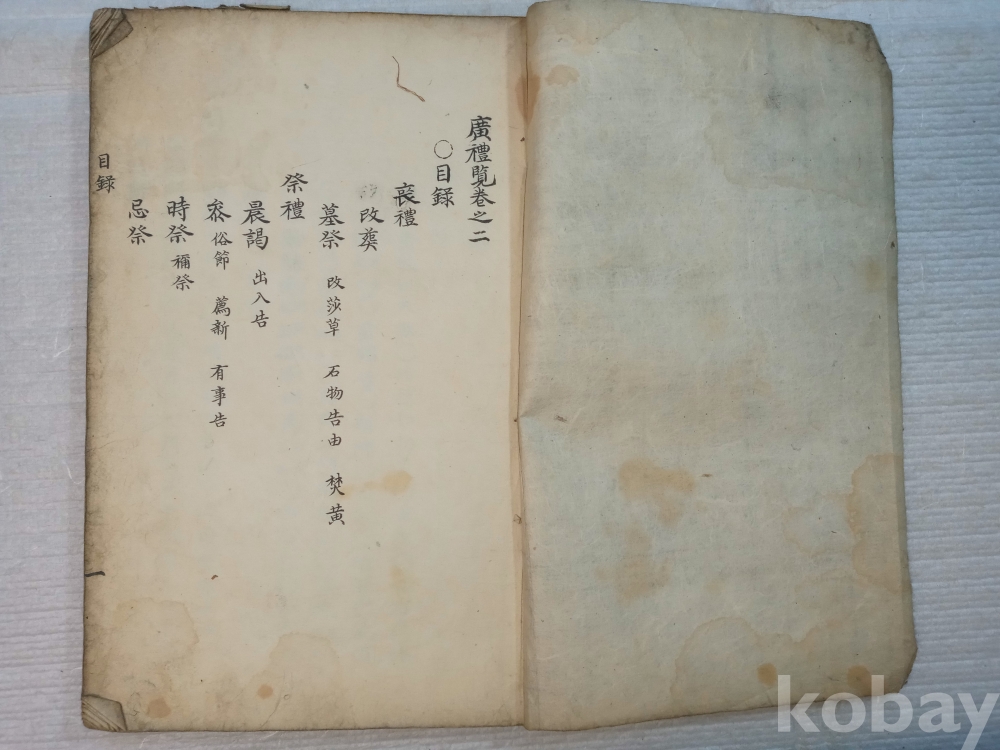 廣禮覽卷之二
○目録
喪禮
改葬
墓祭 改莎草 石物告由 焚黄
祭禮
晨謁 出入告
叅 俗節 薦新 有事告
時祭 禰祭
忌祭
目録
一
kobay